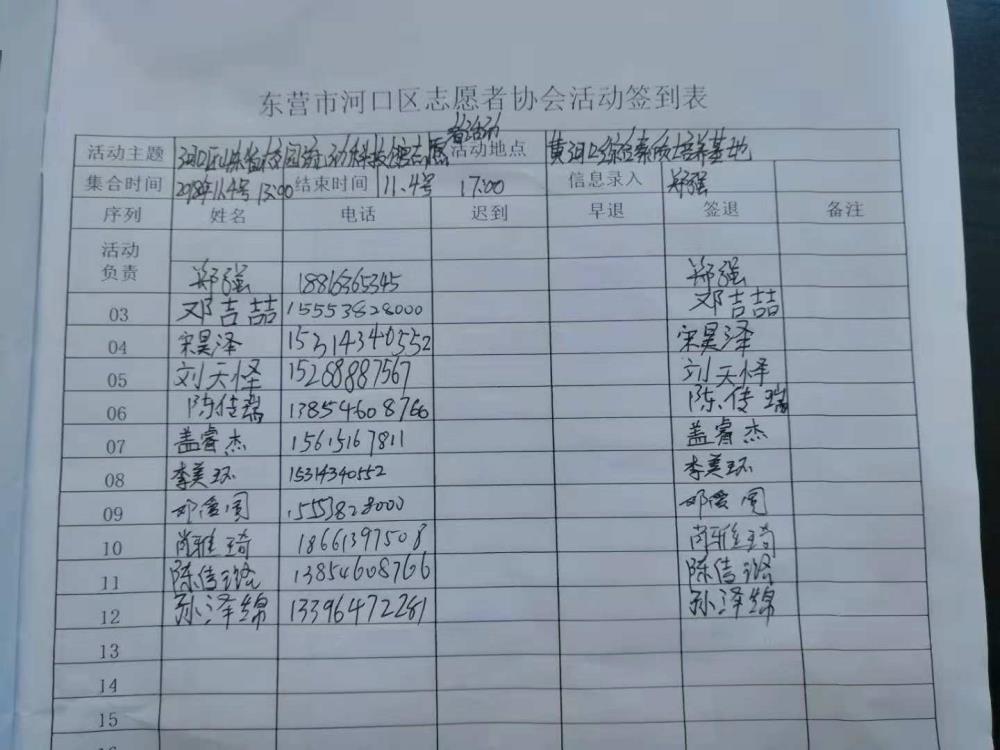 东营市河口区志愿者协会活动签到表
活动主题 河口区 校园 活动 科技馆志愿者活动 活动地点 黄河口综合素质培养基地
集合时间 2018年11.4号 13:00 结束时间 11.4号 17:00 信息录入 郑强
序列 姓名 电话 迟到 早退 签退 备注
活动
负责 郑强 18816365345 郑强
03 邓吉喆 15553828000 邓吉喆
04 宋昊泽 15314340552 宋昊泽
05 刘天怿 15268887567 刘天怿
06 陈传瑞 13854608766 陈传瑞
07 盖睿杰 15615167811 盖睿杰
08 李美环 15314340552 李美环
09 15553828000
10 尚雅琦 18661397508 尚雅琦
11 陈传璐 13854608766 陈传璐
12 孙泽锦 13396472281 孙泽锦
13
14
15